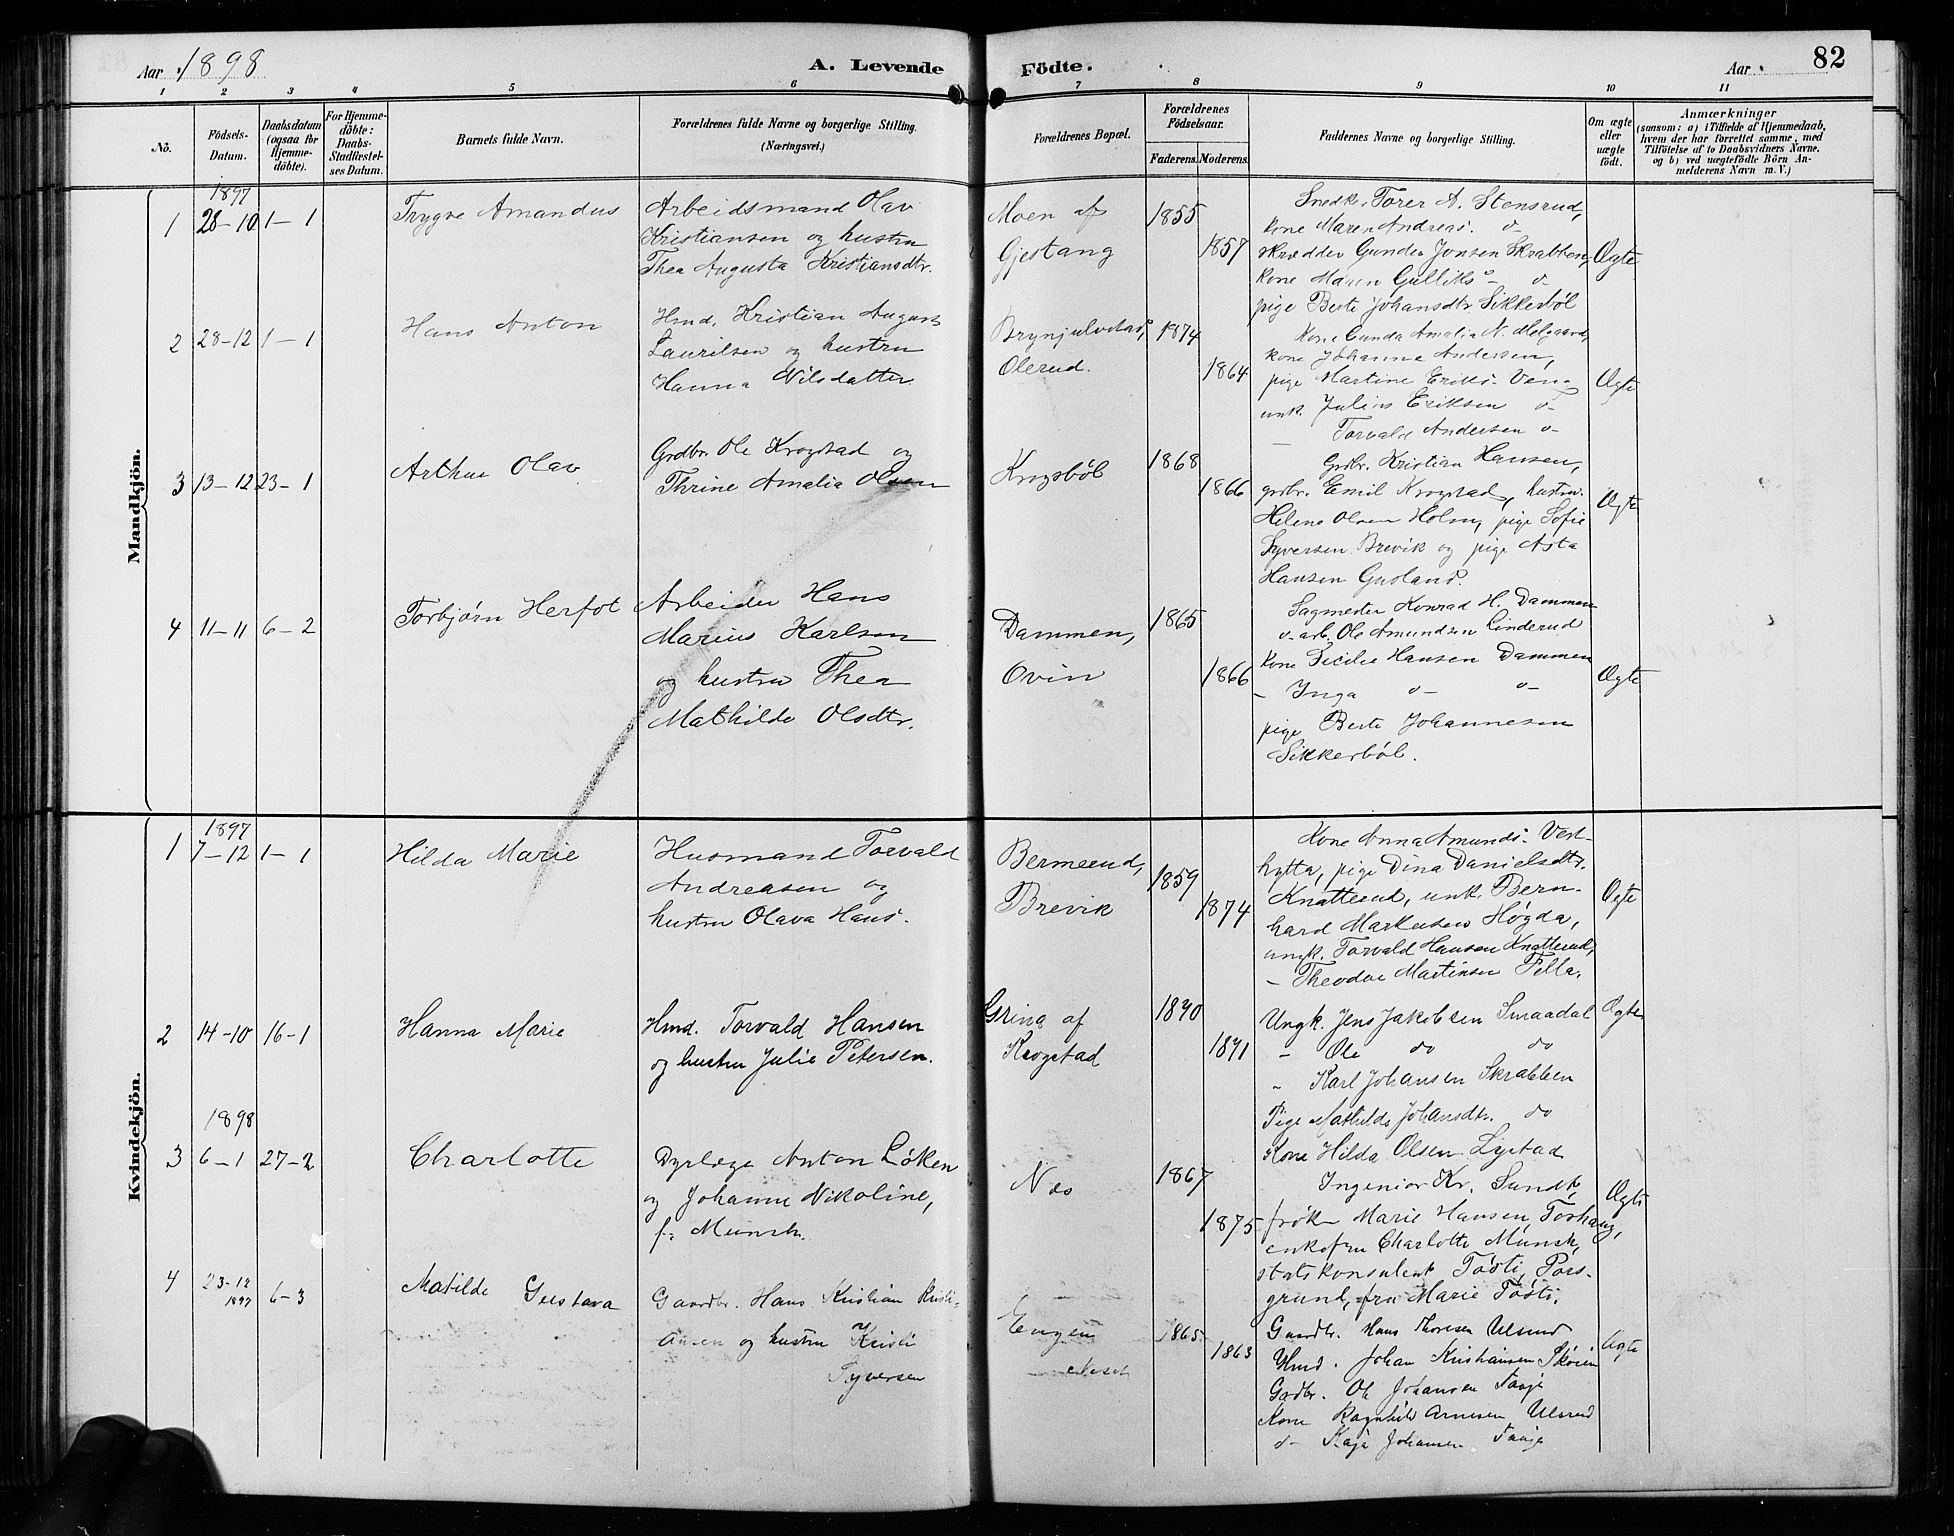 Aar 1898
A. Levende Födte.
Aar
82
1 2 3 4 5 6 7 8 9 10 11
Nô.
Födsels-Datum.
Daabsdatum (ogsaa for Hjemmedöbte).
For Hjemmedöbte: Daabs-Stadfæstelses Datum.
Barnets fulde Navn.
Forældrenes fulde Navne og borgerlige Stilling.
(Næringsvei.)
Forældrenes Bopæl.
Forældrenes Födselsaar.
Faderens. Moderens.
Faddernes Navne og borgerlige Stilling.
Om ægte eller uægte födt.
Anmærkninger
(saasom: a) i Tilfælde af Hjemmedaab,
hvem der har forrettet samme, med
Tilföielse af to Daabsvidners Navne.
og b) ved uægtefödte Börn Anmelderens Navn m. V.)
Mandkjön.
1897
1 28-10 1-1 Trygve Amandus
Arbeidsmand Olav
Kristiansen og hustru
Thea Augusta Kristiansdtr.
Moen af
Gjestang
1855
1857
Snedk. Torer A. Stensrud,
kone Maren Andreas. o-
skrædder Gunder Jonsen Skrabben,
kone Maren Gulliks- o-
pige Berte Johansdtr. Sikkerböl
Ægte
2 28-12 1-1 Hans Anton
Hmd. Kristian August
Lauritsen og hustru
Hanna Nilsdatter
Brynjulvstad,
Olerud.
1874
1864
Kone Gunda Amalia N. Melgaard,
kone Johanne Andersen,
pige Martine Eriks. Ven
unk. Julius Eriksen o-
- Torvald Andersen o-
Ægte
3 13-12 23-1 Arthur Olav
Grdbr. Ole Krogstad og
Thrine Amalia Olsen
Krogsböl
1868
1866
Grdbr. Kristian Hansen,
grdbr. Emil Krogstad, hustru
Helene Olsen Holm, pige Sofie
Syversen Brevik og pige Asta
Hansen Gusland.
Ægte
4 11-11 6-2 Torbjørn Herfot
Arbeider Hans
Marius Karlsen
og hustru Thea
Mathilde Olsdtr.
Dammen,
Ovin
1865
1866
Sagmester Konrad H. Dammen
o- arb. Ole Amundsen Linderud
kone Cicilie Hansen Dammen
- Inga o- o-
pige Berte Johannesen
Sikkerböl.
Ægte
Kvindekjön.
1897
1 7-12 1-1 Hilda Marie
Husmand Torvald
Andreasen og
hustru Olava Hans.
Bermerud,
Brevik
1859
1874
Kone Anna Amunds. Vest-
hytta, pige Dina Danielsdtr.
Knatterud, unk. Bern-
hard Markusen Høgda,
ungk. Torvald Hansen Knatterud,
- Theodor Martinsen Fella.
Ægte
2 14-10 16-1 Hanna Marie
Hmd. Torvald Hansen
og hustru Julie Petersen.
Grina af
Krogstad
1870
1871
Ungk. Jens Jakobsen Smaadal
- Ole do do
- Karl Johansen Skrabben
Pige Mathilde Johansdtr. do
Kone Hilda Olsen Lystad
Ægte
1898
3 6-1 27-2 Charlotte
Dyrlæge Anton Løken
og Johanne Nikoline,
f. Münsk.
Nes
1867
1875
Ingeniør Kr. Sundt,
frøken Marie Hansen, Torhaug,
enkefru Charlotte Münsk,
statskonsulent Tösti, Pors-
grund, fru Marie Tösti.
Ægte
4 23-12 1897 6-3 Matilde Gustava
Gaardbr. Hans Kristian Kristi-
ansen og hustru Kristi
Syversen
Engen
Neset
1865
1863
Gaardbr. Hans Thoresen Ulsrud
Hmd. Johan Kristiansen Skoien
Gardbr. Ole Johansen Faaje
Kone Ragnhild Arnesen Ulsrud
o- Kaja Johansen Faaje
Ægte